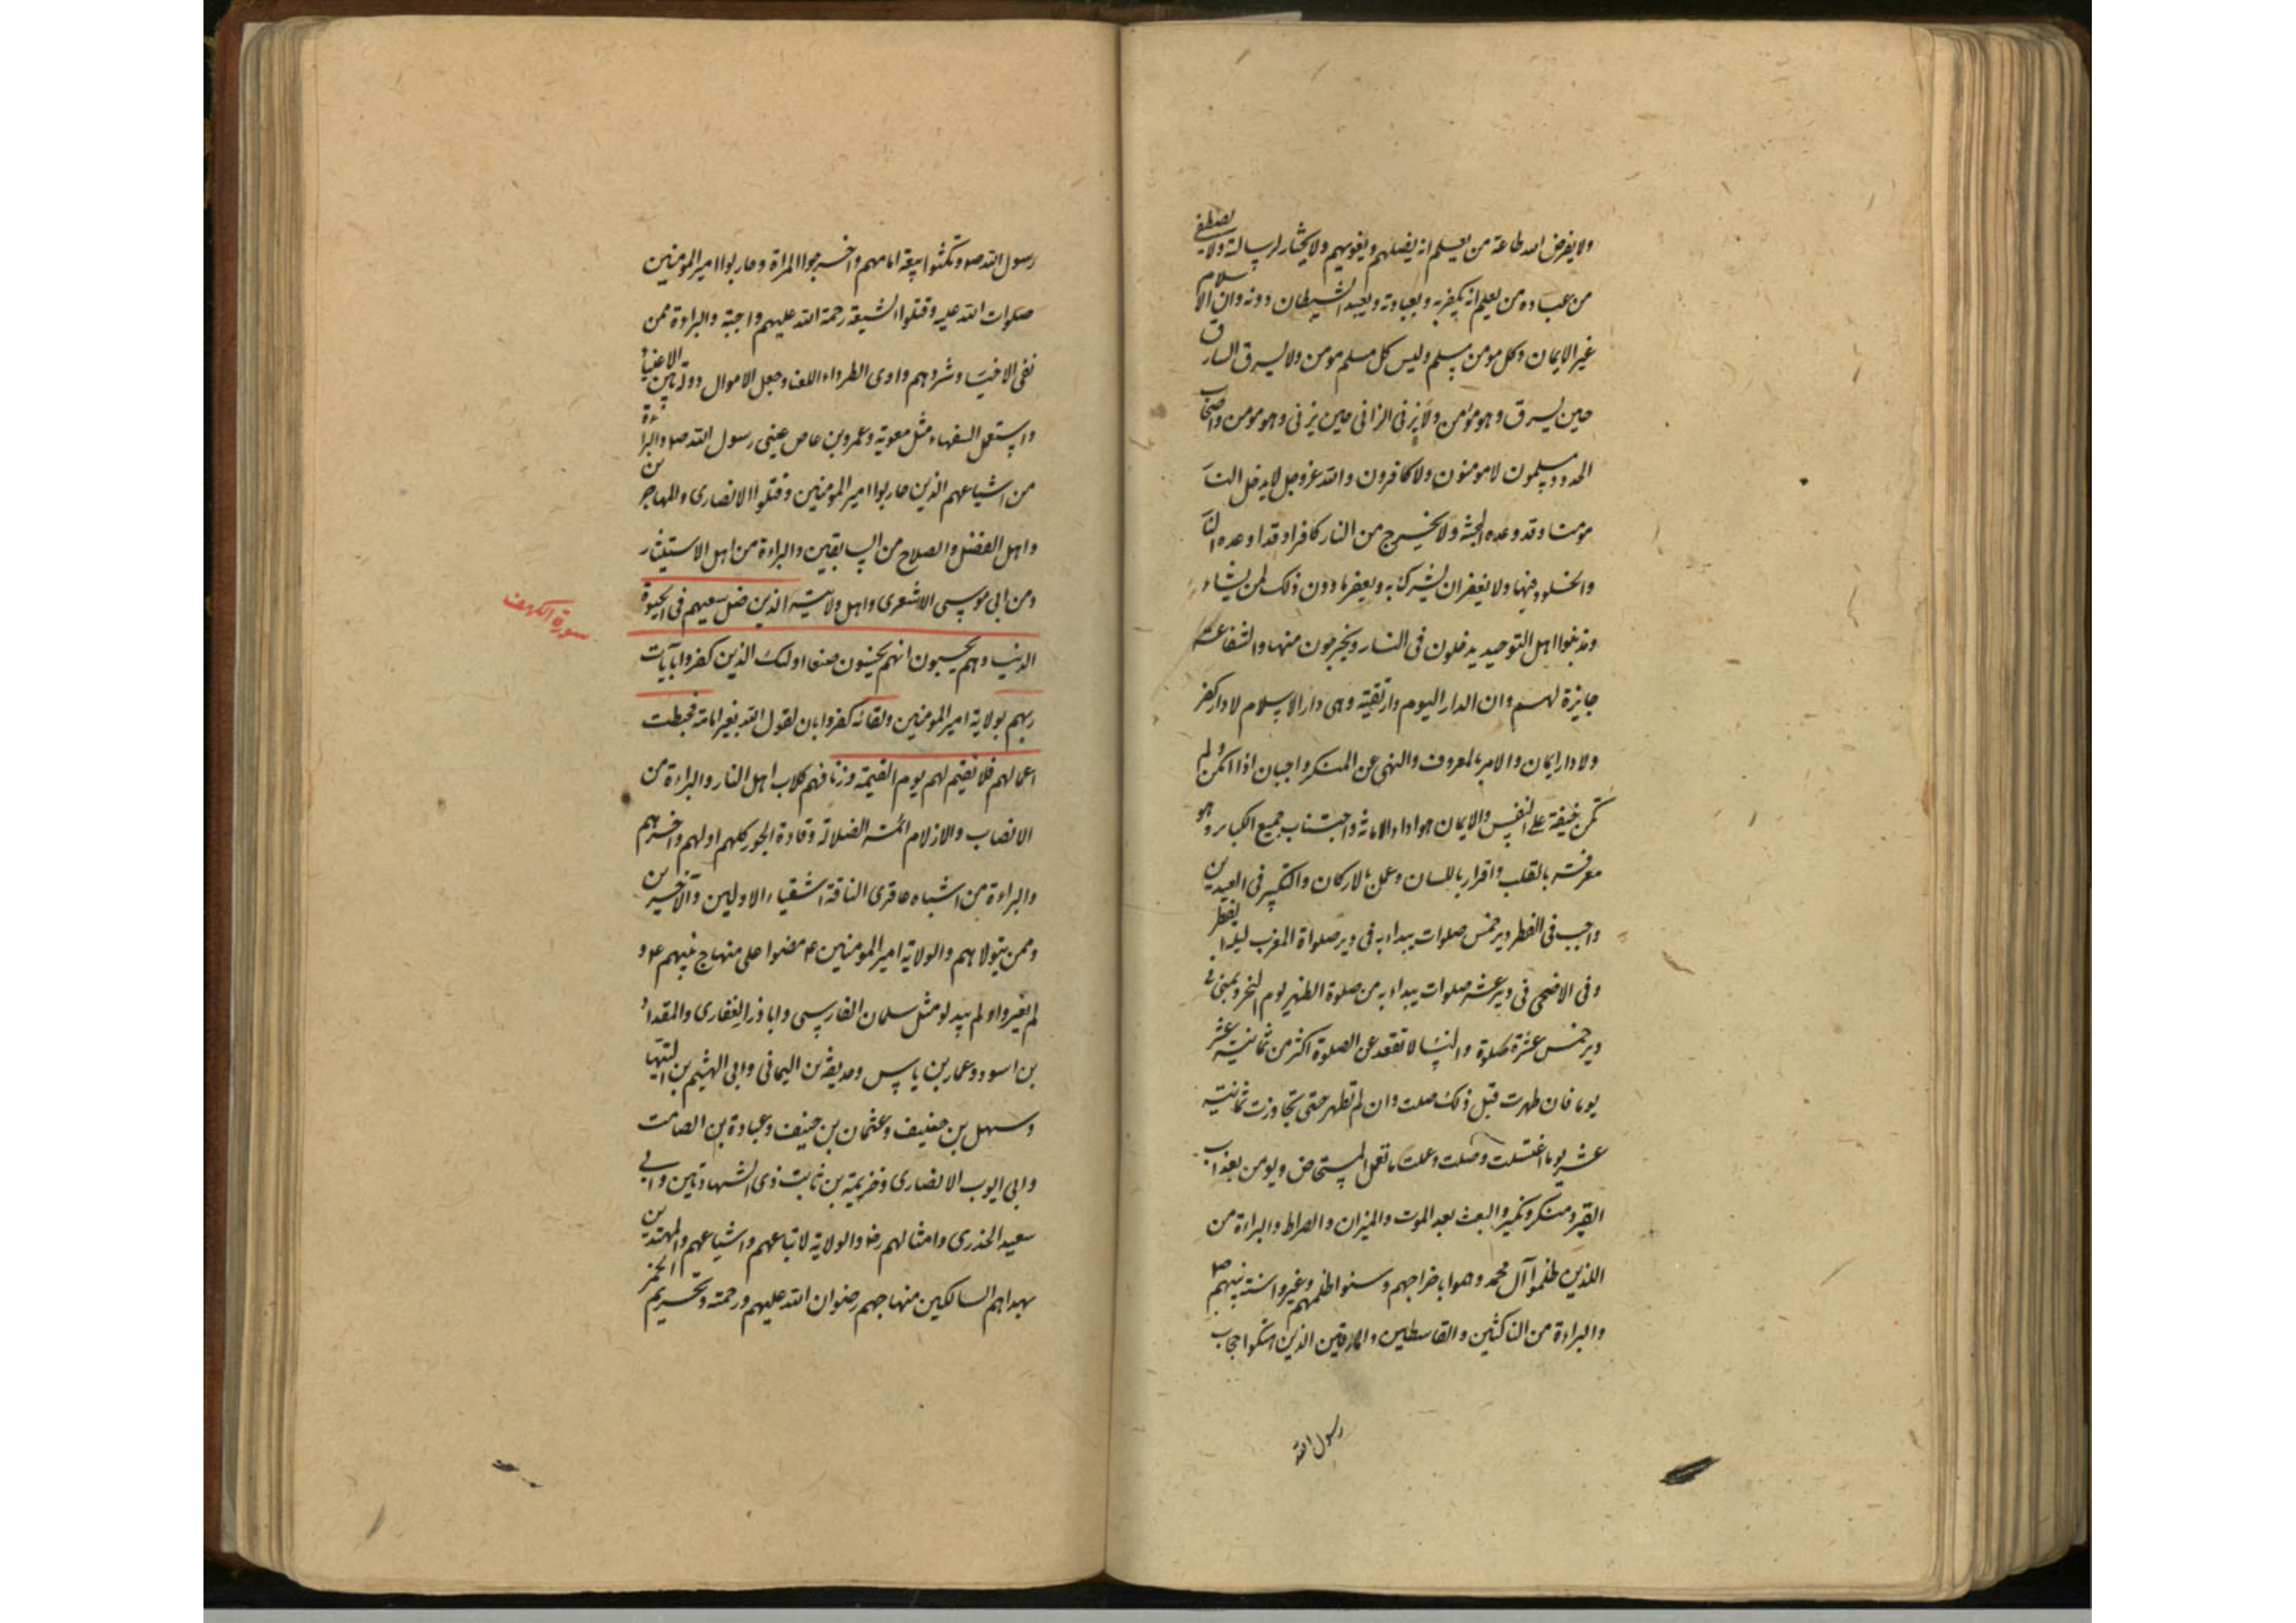 ولا يفرض الله طاعة من يعلم انه يضلهم ويغويهم ولا يختار لرسالته ولا يصطفى
من عباده من يعلم انه يكفر به وبعبادته ويعبد الشيطان دونه وان الاسلام
غير الايمان وكل مومن مسلم وليس كل مسلم مومن ولا يسرق السارق
حين يسرق وهو مومن ولا يزنى الزانى حين يزنى وهو مومن واصحاب
الحدود مسلمون لا مومنون ولا كافرون والله عز وجل لا يدخل النـ
مومنا وقد وعده الجنة ولا يخرج من النار كافرا وقد اوعده النا
والخلود فيها ولا يغفر ان يشرك به ويغفر ما دون ذلك لمن يشاء
ومذنبوا اهل التوحيد يدخلون فى النار ويخرجون منها والشفاعة
جايزة لهم وان الدار اليوم دار تقية وهى دار الاسلام لا دار كفر
ولا دار ايمان والامر بالمعروف والنهى عن المنكر واجبان اذا امكن ولم
تكن خيفة على النفس والايمان هو اداء الامانة واجتناب جميع الكباير وهو
معرفته بالقلب واقرار باللسان وعمل بالاركان والتكبير فى العيدين
واجب فى الفطر دبر خمس صلوات يبداء به فى دبر صلواة المغرب ليلة الفطر
وفى الاضحى فى دبر عشر صلوات يبداء به من صلوة الظهر يوم النحر وبمنى فى
دبر خمس عشرة صلوة والنسا لا تقعد عن الصلوة اكثر من ثمانية عشر
يوما فان طهرت قبل ذلك صلت وان لم تطهر حتى تجاوزت ثمانية
عشر يوما اغتسلت وصلت وعملت ما تعمل المستحاض ويومن بعذاب
القبر ومنكر ونكير والبعث بعد الموت والميزان والصراط والبراءة من
اللذين ظلموا آل محمد وهموا باخراجهم وسنوا ظلمهم وغيروا سنة نبيهم ص
والبراءة من الناكثين والقاسطين والمارقين الذين هتكوا حجاب
رسول الله
رسول الله ص ونكثوا بيعة امامهم واخرجوا المراة وحاربوا امير المومنين
صلوات الله عليه وقتلوا الشيعة رحمة الله عليهم واجبة والبراءة ممن
نفى الاخيـ وشردهم واوى الطرداء اللعنـ وجعل الاموال دولة بين الاغنياء
واستعمل السفهاء مثل معوية وعمرو بن عاص عينى رسول الله ص والبراءة
من اشياعهم الذين حاربوا امير المومنين وقتلوا الانصارى والمهاجرين
واهل الفضل والصلاح من السابقين والبراءة من اهل الاستيثار
ومن ابى موسى الاشعرى واهل ولايته الذين ضل سعيهم فى الحيوة
الدنيا وهم يحسبون انهم يحسنون صنعا اولئك الذين كفروا بآيات
سورة الكهف
ربهم بولاية امير المومنين ولقائه كفروا بان لقوا الله بغير امامته فحبطت
اعمالهم فلا نقيم لهم يوم القيمة وزنا فهم كلاب اهل النار والبراءة من
الانصاب والازلام ائمة الضلالة وقادة الجور كلهم اولهم واخرهم
والبراءة من اشباه عاقرى الناقة اشقياء الاولين والآخرين
وممن يتولاهم والولاية امير المومنين ع مضوا على منهاج نبيهم ع و
لم يغيروا ولم يبدلو مثل سلمان الفارسى واباذر الغفارى والمقداد
بن اسود وعمار بن ياسر وحديقة بن اليمانى وابى الهثيم بن التيها
وسهل بن حنيف وعثمان بن حنيف وعبادة بن الصامت
وابى ايوب الانصارى وخزيمة بن ثابت ذى الشهادتين وابى
سعيد الخدرى وامثالهم رض والولاية لاتباعهم واشياعهم والمهتدين
بهداهم السالكين منهاجهم رضوان الله عليهم ورحمته وتحريم الخمر